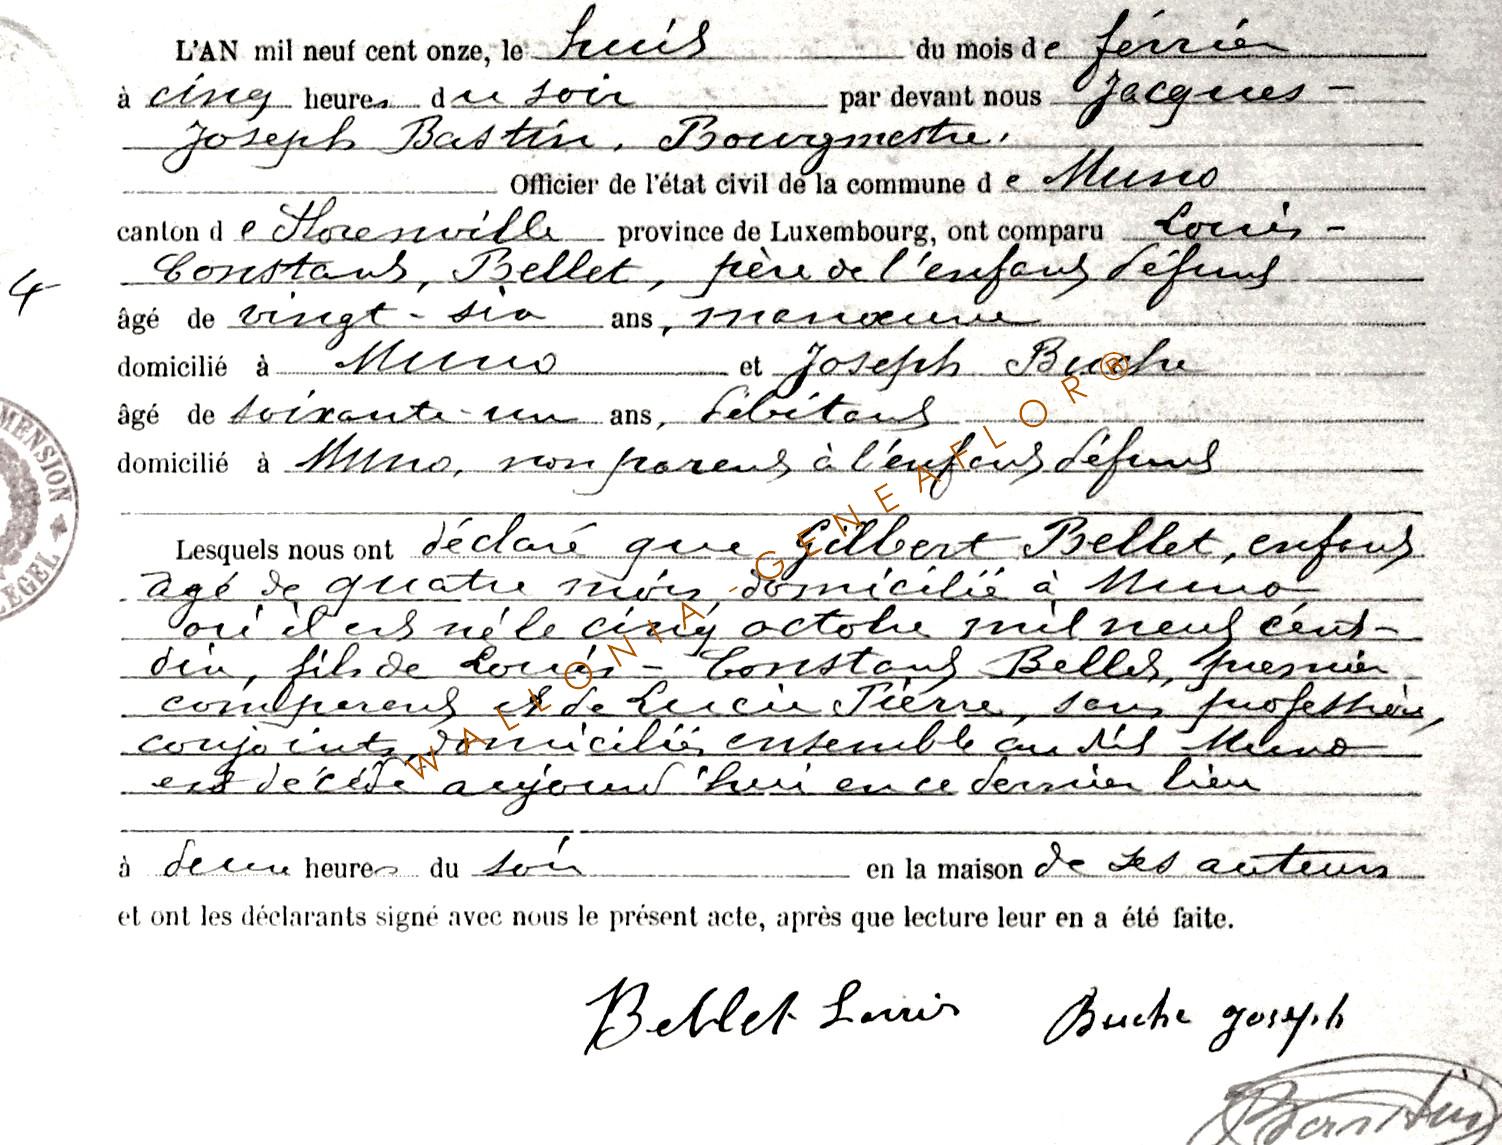 L'AN mil neuf cent onze, le huit du mois de février
à cinq heures du soir par devant nous Jacques-
Joseph Bastin, Bourgmestre,
Officier de l'état civil de la commune de Muno
canton de Florenville province de Luxembourg, ont comparu Louis-
Constant, Bellet, père de l'enfant défunt
4
âgé de vingt-six ans, manœuvre
domicilié à Muno et Joseph Buche
âgé de soixante-un ans, débitant
domicilié à Muno, non parent à l'enfant défunt
MENSION
LEGEL
Lesquels nous ont déclaré que Gilbert Bellet, enfant
âgé de quatre mois, domicilié à Muno
où il est né le cinq octobre mil neuf cent-
dix, fils de Louis-Constant Bellet, premier
comparent et de Lucie Pierre, sans profession,
conjoints domiciliés ensemble au dit Muno
est décédé aujourd'hui en ce dernier lieu
à deux heures du soir en la maison de ses auteurs
et ont les déclarants signé avec nous le présent acte, après que lecture leur en a été faite.
Bellet Louis Buche Joseph
Bastin
WALLONIA-GENEAFLOR®